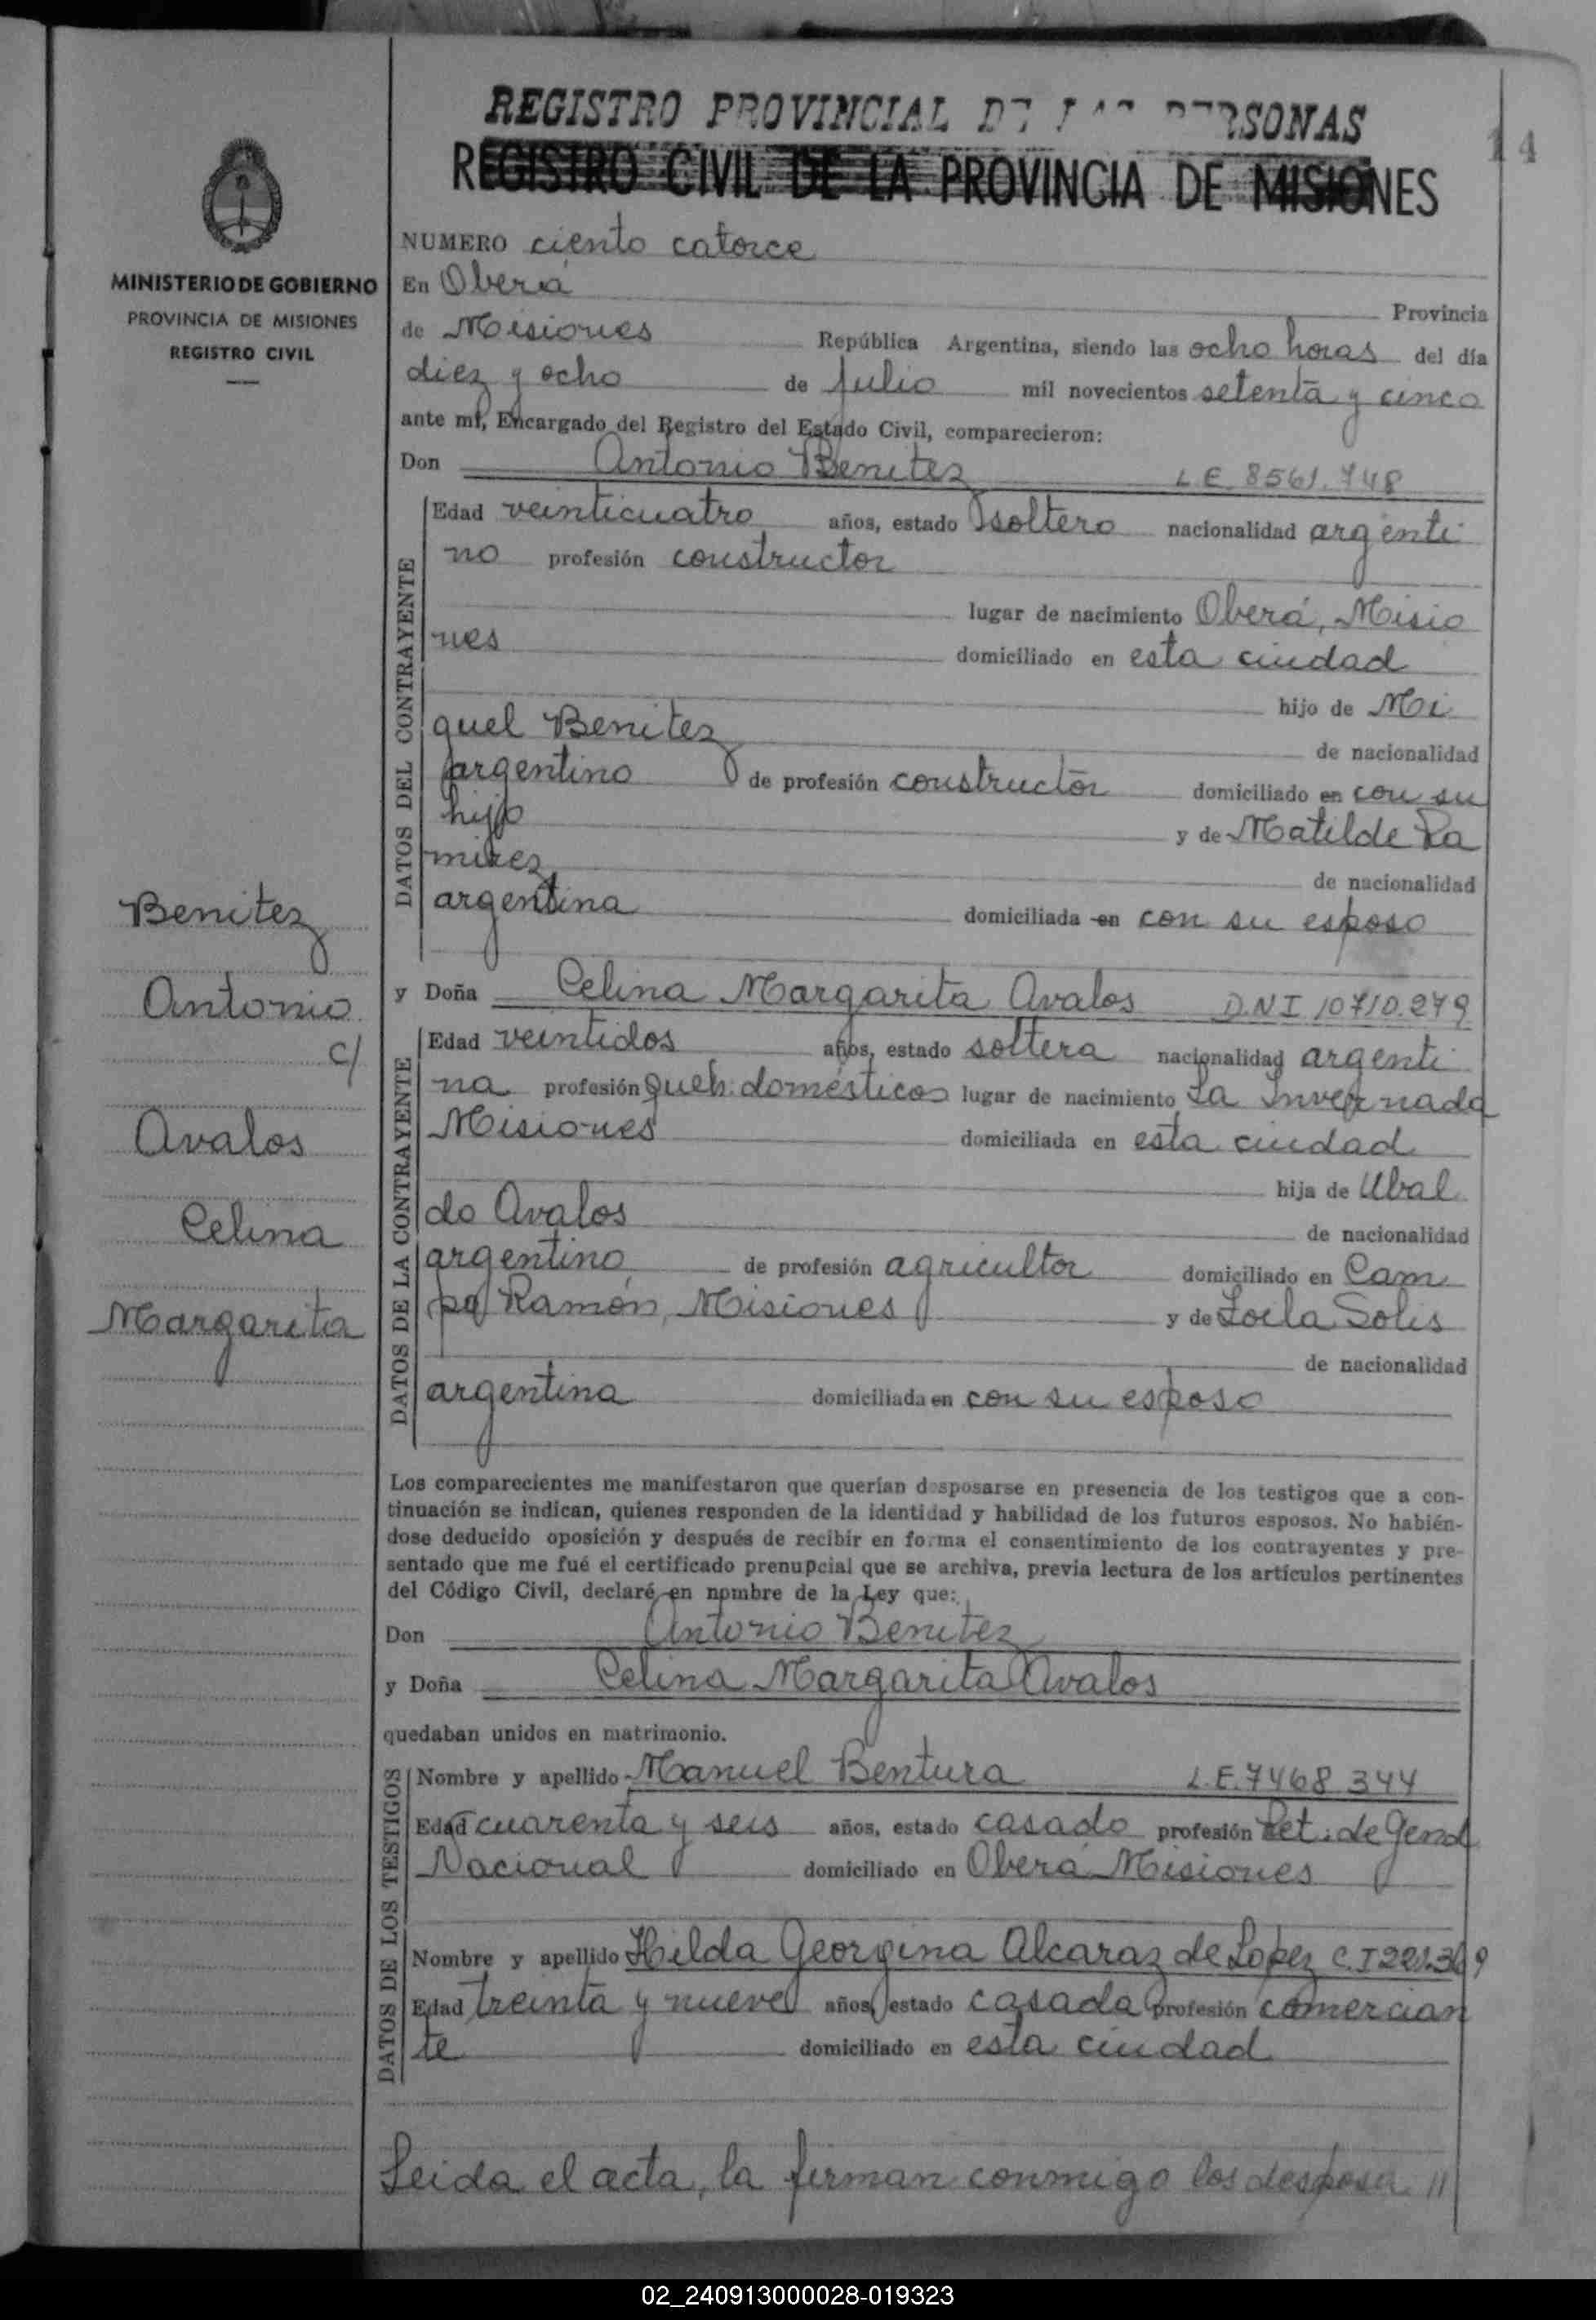 REGISTRO PROVINCIAL DE LAS PERSONAS
REGISTRO CIVIL DE LA PROVINCIA DE MISIONES
14
MINISTERIO DE GOBIERNO
PROVINCIA DE MISIONES
REGISTRO CIVIL
Benitez
Antonio
c/
Avalos
Celina
Margarita
NUMERO ciento catorce
En Oberá Provincia
de Misiones República Argentina, siendo las ocho horas del día
diez y ocho de julio mil novecientos setenta y cinco
ante mí, Encargado del Registro del Estado Civil, comparecieron:
Don Antonio Benitez L.E. 8561.748
DATOS DEL CONTRAYENTE
Edad veinticuatro años, estado soltero nacionalidad argenti
no profesión constructor
lugar de nacimiento Oberá, Misio
nes domiciliado en esta ciudad
hijo de Mi
guel Benitez de nacionalidad
argentino de profesión constructor domiciliado en con su
hijo y de Matilde Ra
mirez de nacionalidad
argentina domiciliada en con su esposo
y Doña Celina Margarita Avalos D.N.I 10710.279
DATOS DE LA CONTRAYENTE
Edad veintidos años, estado soltera nacionalidad argenti
na profesión queh. domésticos lugar de nacimiento La Invernada
Misiones domiciliada en esta ciudad
hija de Ubal
do Avalos de nacionalidad
argentino de profesión agricultor domiciliado en Cam
po Ramón, Misiones y de Zoila Solis
de nacionalidad
argentina domiciliada en con su esposo
Los comparecientes me manifestaron que querían desposarse en presencia de los testigos que a con-
tinuación se indican, quienes responden de la identidad y habilidad de los futuros esposos. No habién-
dose deducido oposición y después de recibir en forma el consentimiento de los contrayentes y pre-
sentado que me fué el certificado prenupcial que se archiva, previa lectura de los artículos pertinentes
del Código Civil, declaré en nombre de la Ley que:
Don Antonio Benitez
y Doña Celina Margarita Avalos
quedaban unidos en matrimonio.
DATOS DE LOS TESTIGOS
Nombre y apellido Manuel Bentura L.E. 7468.344
Edad cuarenta y seis años, estado casado profesión Ret. de Gend
Nacional domiciliado en Oberá Misiones
Nombre y apellido Hilda Georgina Alcaraz de Lopez C.I 221.369
Edad treinta y nueve años, estado casada profesión comercian
te domiciliado en esta ciudad
Leida el acta, la firman conmigo los desposa //
02_240913000028-019323